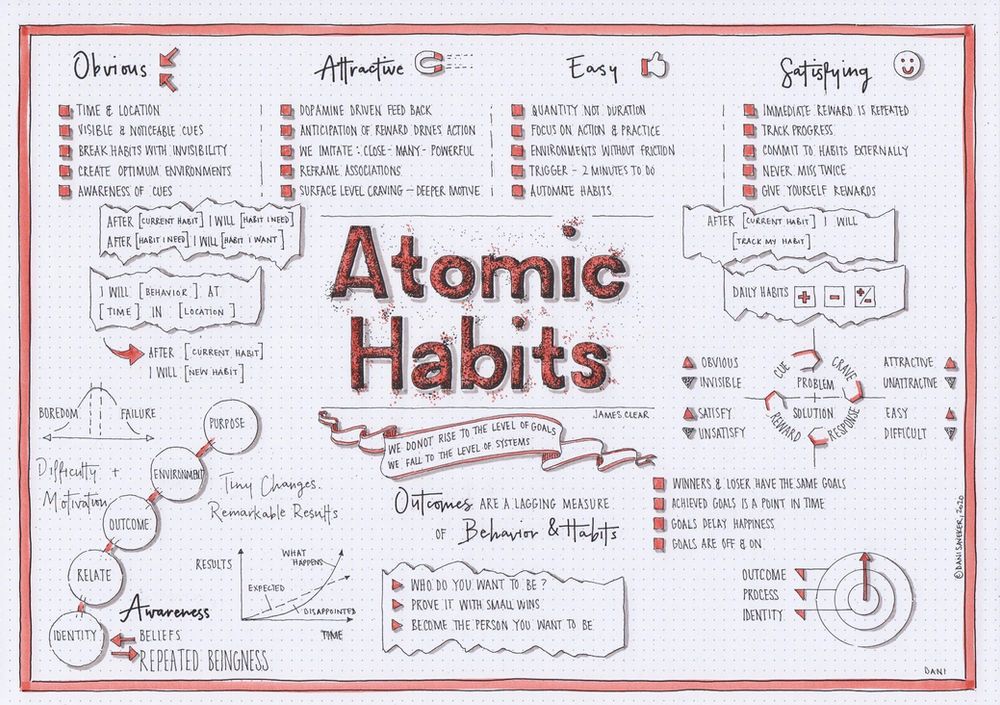 Obvious
TIME & LOCATION
VISIBLE & NOTICEABLE CUES
BREAK HABITS WITH INVISIBILITY
CREATE OPTIMUM ENVIRONMENTS
AWARENESS OF CUES
AFTER [CURRENT HABIT] I WILL [HABIT I NEED]
AFTER [HABIT I NEED] I WILL [HABIT I WANT]
I WILL [BEHAVIOR] AT
[TIME] IN [LOCATION]
AFTER [CURRENT HABIT]
I WILL [NEW HABIT]
Attractive
DOPAMINE DRIVEN FEED BACK
ANTICIPATION OF REWARD DRIVES ACTION
WE IMITATE : CLOSE - MANY - POWERFUL
REFRAME ASSOCIATIONS
SURFACE LEVEL CRAVING - DEEPER MOTIVE
Easy
QUANTITY NOT DURATION
FOCUS ON ACTION & PRACTICE
ENVIRONMENTS WITHOUT FRICTION
TRIGGER - 2 MINUTES TO DO
AUTOMATE HABITS
Satisfying
IMMEDIATE REWARD IS REPEATED
TRACK PROGRESS
COMMIT TO HABITS EXTERNALLY
NEVER MISS TWICE
GIVE YOURSELF REWARDS
AFTER [CURRENT HABIT] I WILL
[TRACK MY HABIT]
DAILY HABITS + - +/-
Atomic
Habits
JAMES CLEAR
WE DO NOT RISE TO THE LEVEL OF GOALS
WE FALL TO THE LEVEL OF SYSTEMS
OBVIOUS
INVISIBLE
SATISFY
UNSATISFY
CUE
CRAVE
PROBLEM
SOLUTION
REWARD
RESPONSE
ATTRACTIVE
UNATTRACTIVE
EASY
DIFFICULT
BOREDOM
FAILURE
Difficulty +
Motivation
PURPOSE
ENVIRONMENT
OUTCOME
RELATE
IDENTITY
Tiny Changes.
Remarkable Results
Outcomes ARE A LAGGING MEASURE
OF Behavior & Habits
WINNERS & LOSER HAVE THE SAME GOALS
ACHIEVED GOALS IS A POINT IN TIME
GOALS DELAY HAPPINESS
GOALS ARE OFF & ON
RESULTS
WHAT
HAPPENS
EXPECTED
DISAPPOINTED
TIME
Awareness
BELIEFS
REPEATED BEINGNESS
WHO DO YOU WANT TO BE ?
PROVE IT WITH SMALL WINS
BECOME THE PERSON YOU WANT TO BE
OUTCOME
PROCESS
IDENTITY
© DANI SAVEKER, 2020
DANI